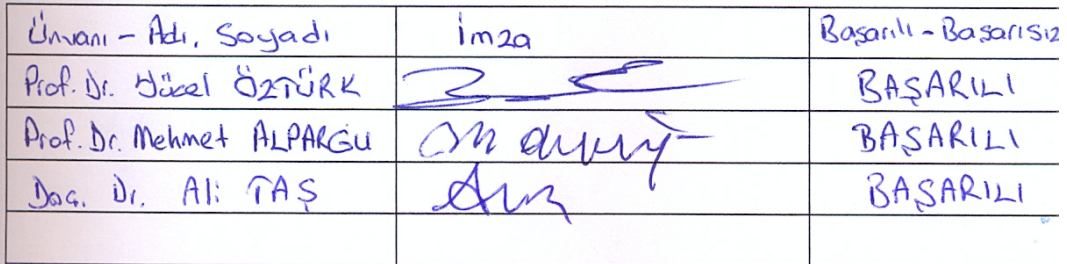 Ünvanı - Adı, Soyadı İmza Başarılı - Başarısız
Prof. Dr. Yücel ÖZTÜRK BAŞARILI
Prof. Dr. Mehmet ALPARGU BAŞARILI
Doç. Dr. Ali TAŞ BAŞARILI